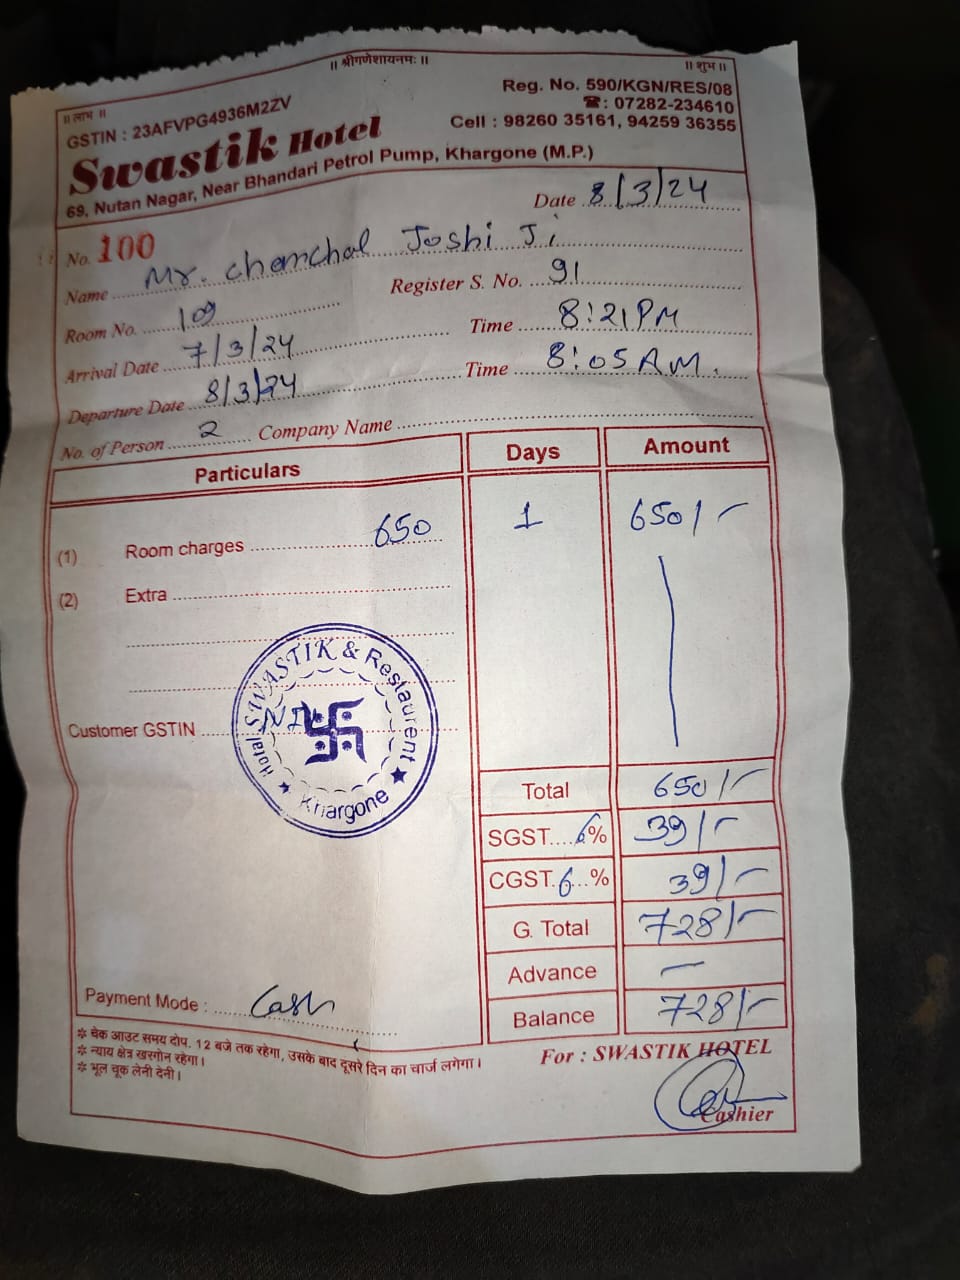 ॥ लाभ ॥ ॥ श्रीगणेशायनमः ॥ ॥ शुभ ॥
GSTIN : 23AFVPG4936M2ZV Reg. No. 590/KGN/RES/08
☎: 07282-234610
Swastik Hotel Cell : 98260 35161, 94259 36355
69, Nutan Nagar, Near Bhandari Petrol Pump, Khargone (M.P.)
Date 8/3/24
No. 100
Name Mr. Chanchal Joshi Ji
Room No. 109 Register S. No. 91
Arrival Date 7/3/24 Time 8:21 PM
Departure Date 8/3/24 Time 8:05 AM.
No. of Person 2 Company Name
Particulars Days Amount
(1) Room charges 650 1 650/-
(2) Extra
Customer GSTIN
Hotal SWASTIK & Restaurent
Khargone
Total 650/-
SGST....6% 39/-
CGST.6..% 39/-
G. Total 728/-
Advance -
Payment Mode : Cash Balance 728/-
* चेक आउट समय दोप. 12 बजे तक रहेगा, उसके बाद दूसरे दिन का चार्ज लगेगा।
* न्याय क्षेत्र खरगोन रहेगा।
* भूल चूक लेनी देनी।
For : SWASTIK HOTEL
Cashier